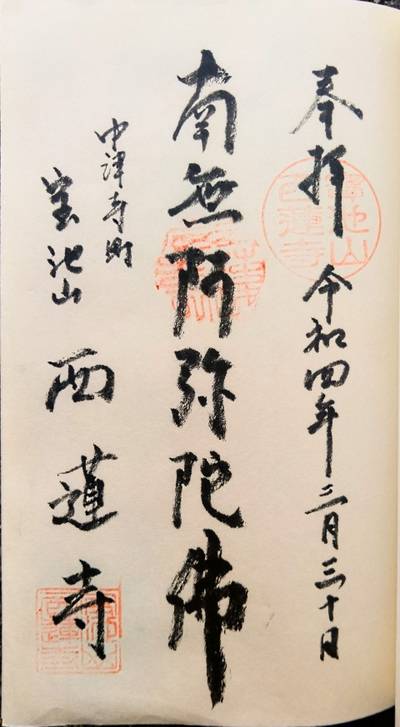 奉拝 令和四年三月三十日
南無阿弥陀佛
中津寺町
宝池山 西蓮寺